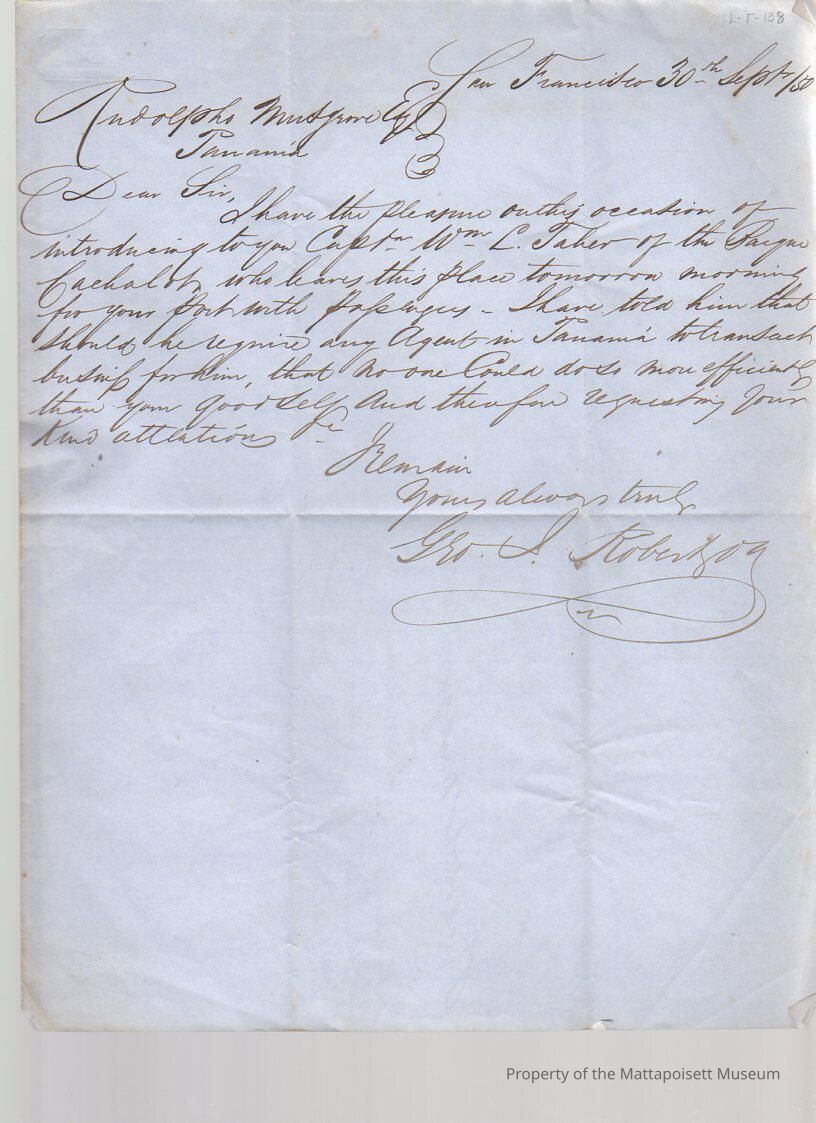 L-T-138
San Francisco 30th Septr /50
Rudolpho Musgrove Esq
Panamá
Dear Sir,
I have the pleasure on this occasion of
introducing to you Captn Wm L. Taber of the Barque
Cachalot, who leaves this place tomorrow morning
for your port with passengers - I have told him that
should he require any Agent in Panamá to transact
business for him, that no one Could do so more efficiently
than your good self, And therefore requesting your
Kind attentions
I Remain
Yours always truly
Geo. S. Robertson
Property of the Mattapoisett Museum